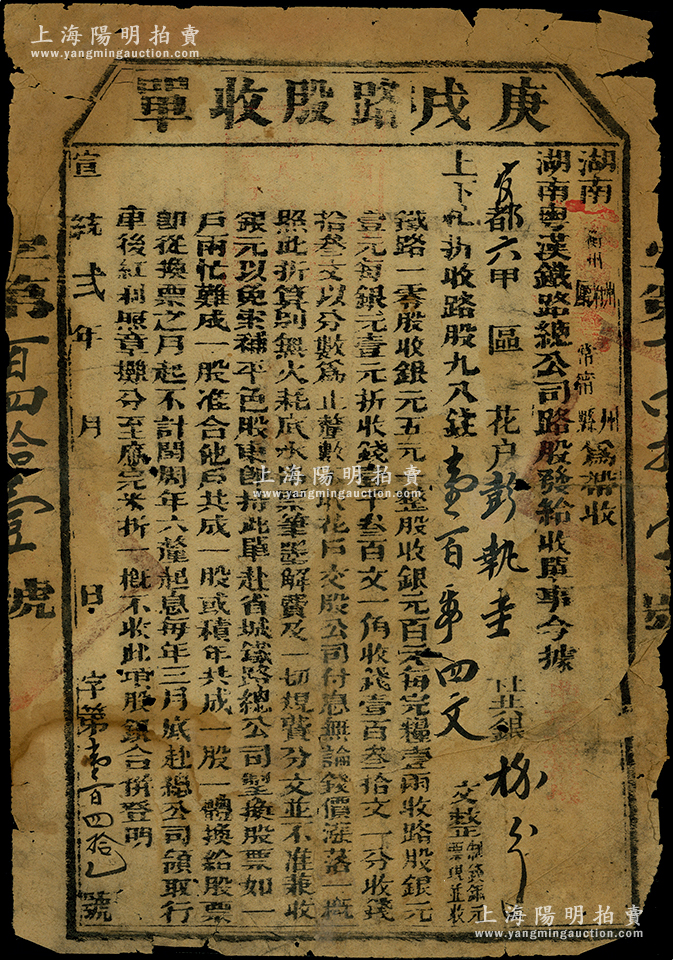 上海陽明拍賣
www.yangmingauction.com
庚戌路股收單
湖南 衡州 常寧縣 為帶收
湖南粵漢鐵路總公司路股發給收單事今據
都六甲 區 花户彭執圭 正銀 分
上下忙折收路股九八錢壹百 四文 文整 制錢銀元票現並收
鐵路一零股收銀元五元一整股收銀元百元每完糧壹兩收路股銀元
壹元每銀元壹元折收錢壹千叁百文一角收錢壹百叁拾文一分收錢
拾叁文以分數為止釐數不收花戶交股公司付息無論錢價漲落一概
照此折算別無火耗底水 票筆墨解費及一切規費分文並不准兼收
銀元以免索補平色股東即持此單赴省城鐵路總公司掣換股票如一
戶兩忙難成一股准合他戶共成一股或積年共成一股一體換給股票
即從換票之月起不計閏周年六釐起息每年三月底赴總公司領取行
車後紅利照章攤分至應完米折一概不收此單股銀合併登明
宣統弍年 月 日 字第壹百四拾乙號
字第一百四拾壹號
上海陽明拍賣
www.yangmingauction.com
上海陽明拍賣
www.yangmingauction.com